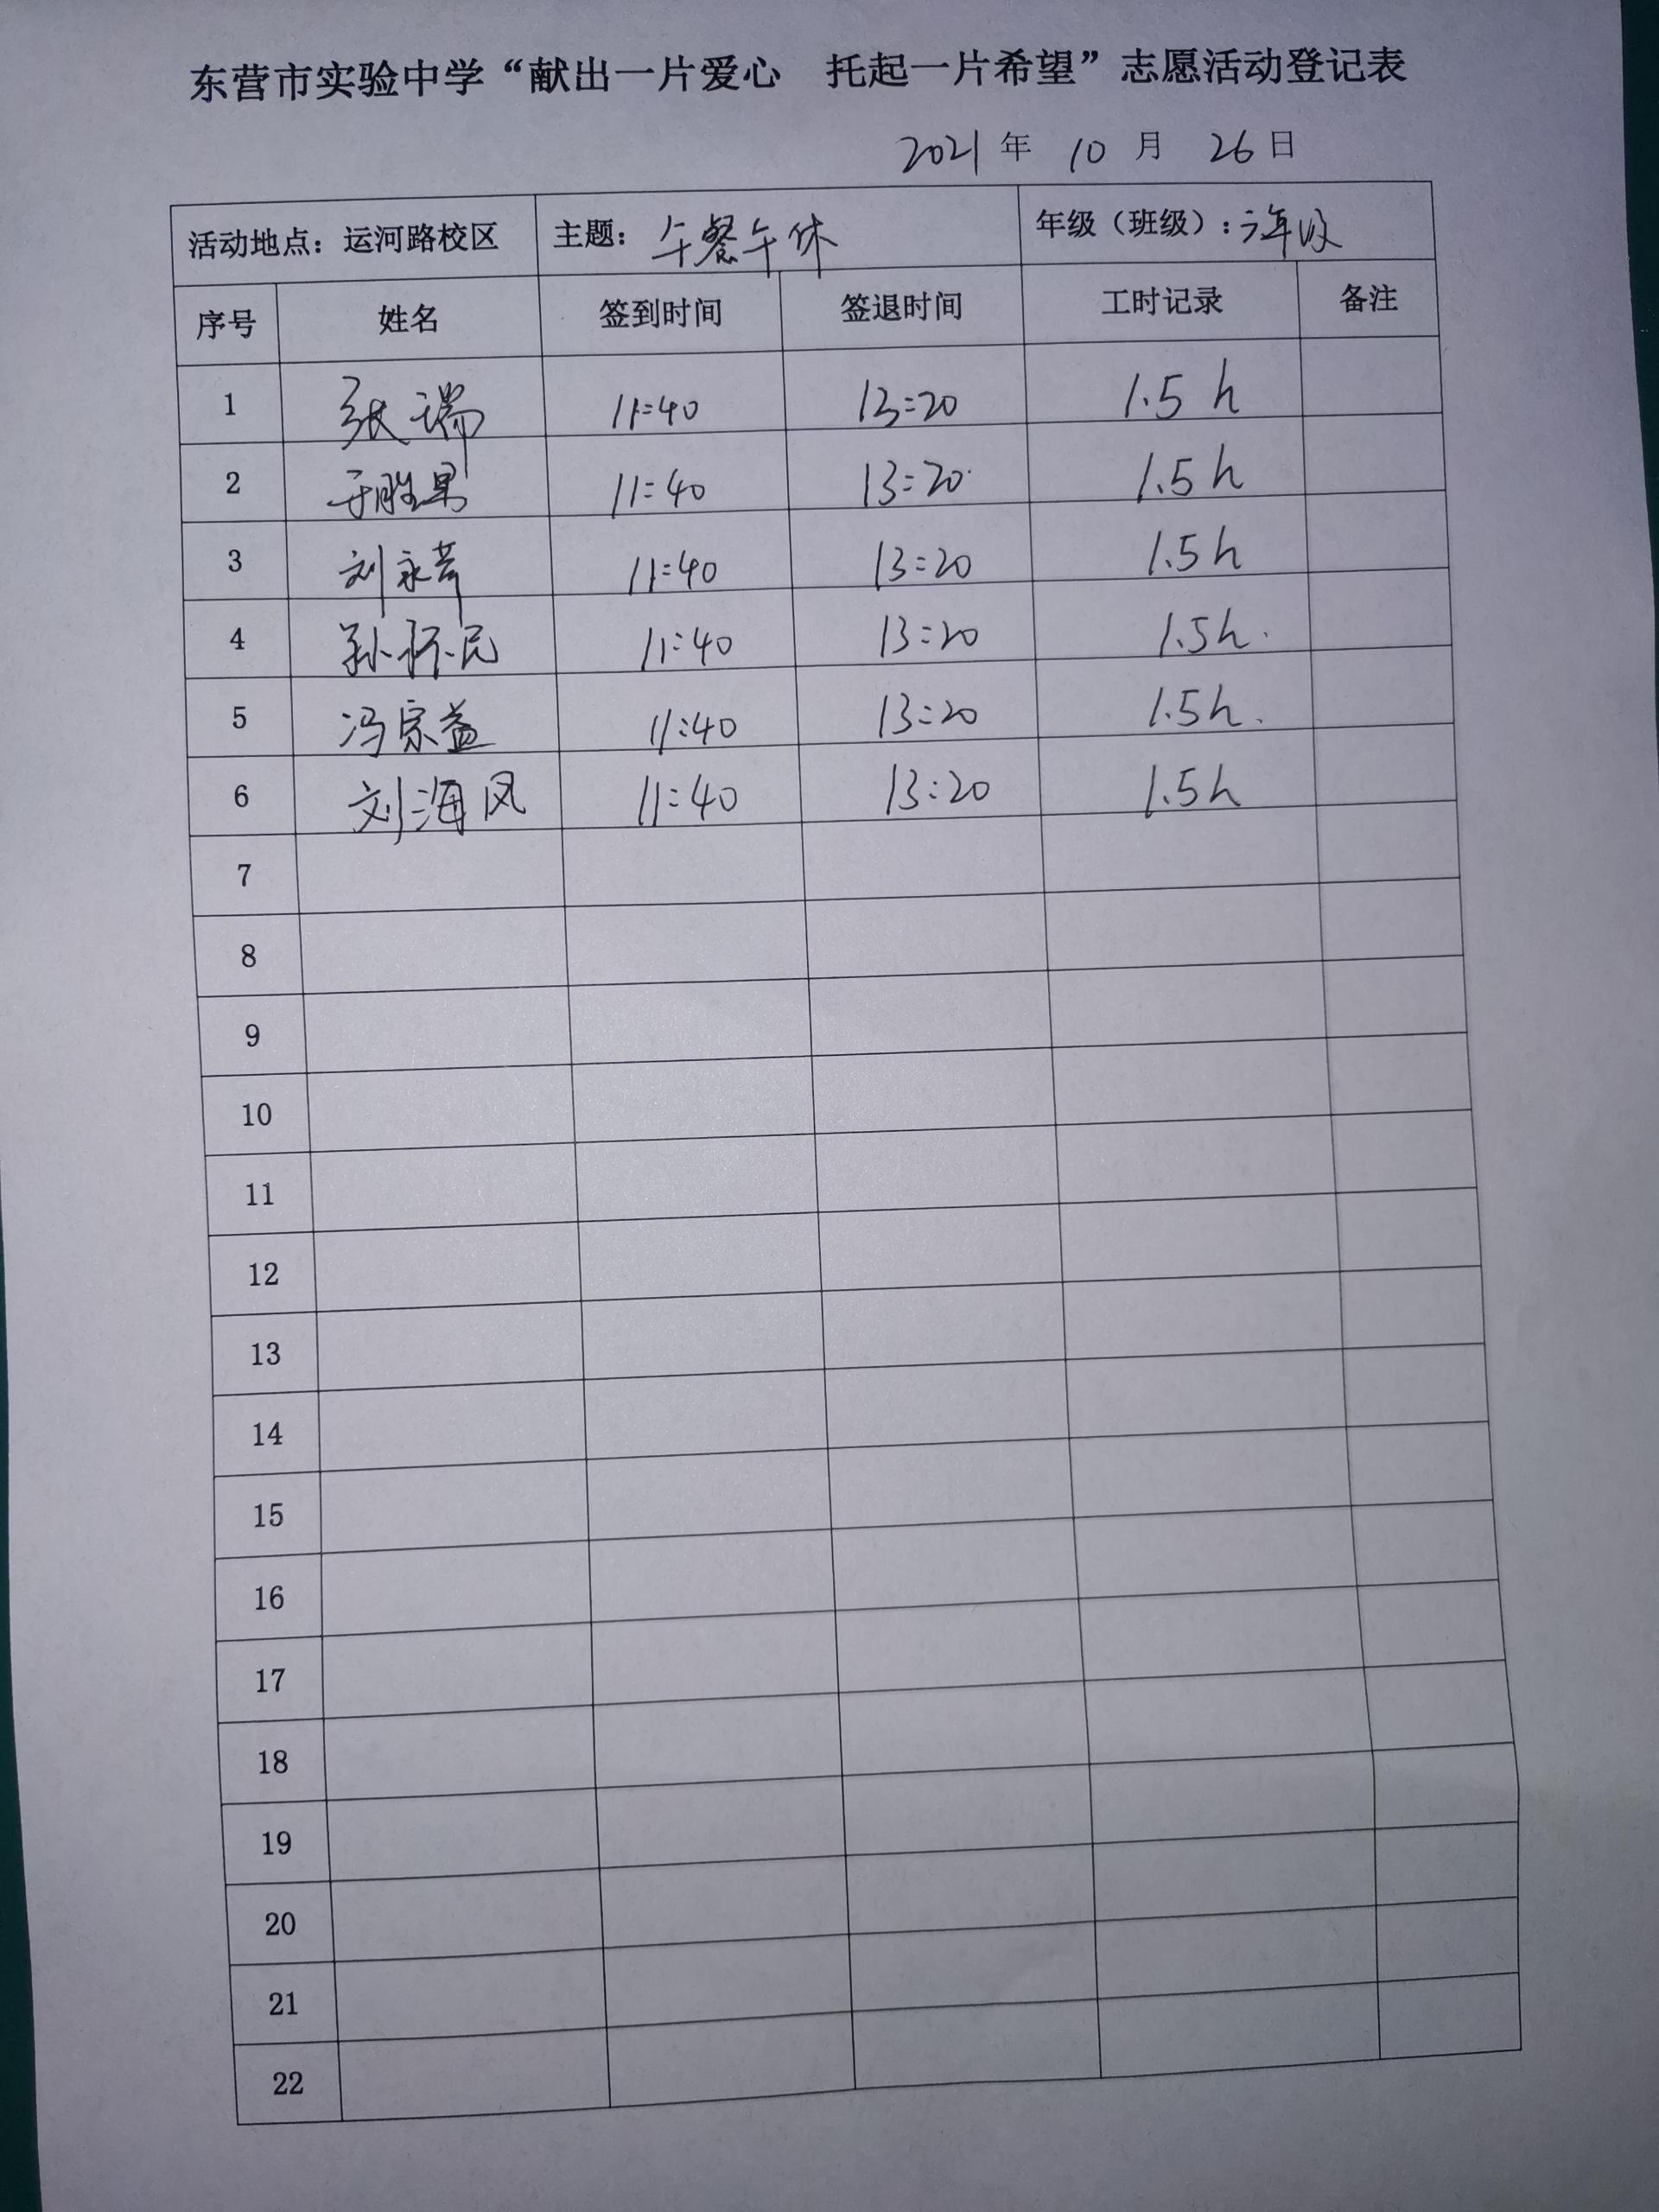 东营市实验中学“献出一片爱心 托起一片希望”志愿活动登记表
2021 年 10 月 26 日
活动地点：运河路校区 主题：午餐午休 年级（班级）：六年级
序号 姓名 签到时间 签退时间 工时记录 备注
1 张瑞 11:40 13:20 1.5h
2 于胜男 11:40 13:20 1.5h
3 刘永芹 11:40 13:20 1.5h.
4 孙怀民 11:40 13:20 1.5h.
5 冯宗益 11:40 13:20 1.5h.
6 刘海风 11:40 13:20 1.5h
7
8
9
10
11
12
13
14
15
16
17
18
19
20
21
22